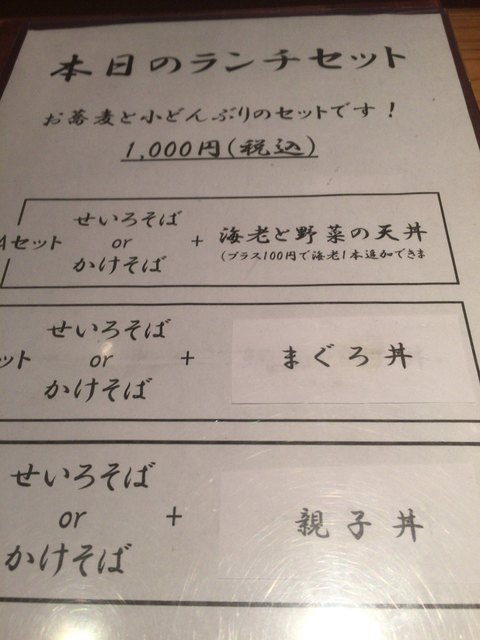 本日のランチセット
お蕎麦と小どんぶりのセットです！
1,000円(税込)
Aセット
せいろそば
or
かけそば
+
海老と野菜の天丼
(プラス100円で海老1本追加できま
ット
せいろそば
or
かけそば
+
まぐろ丼
せいろそば
or
かけそば
+
親子丼